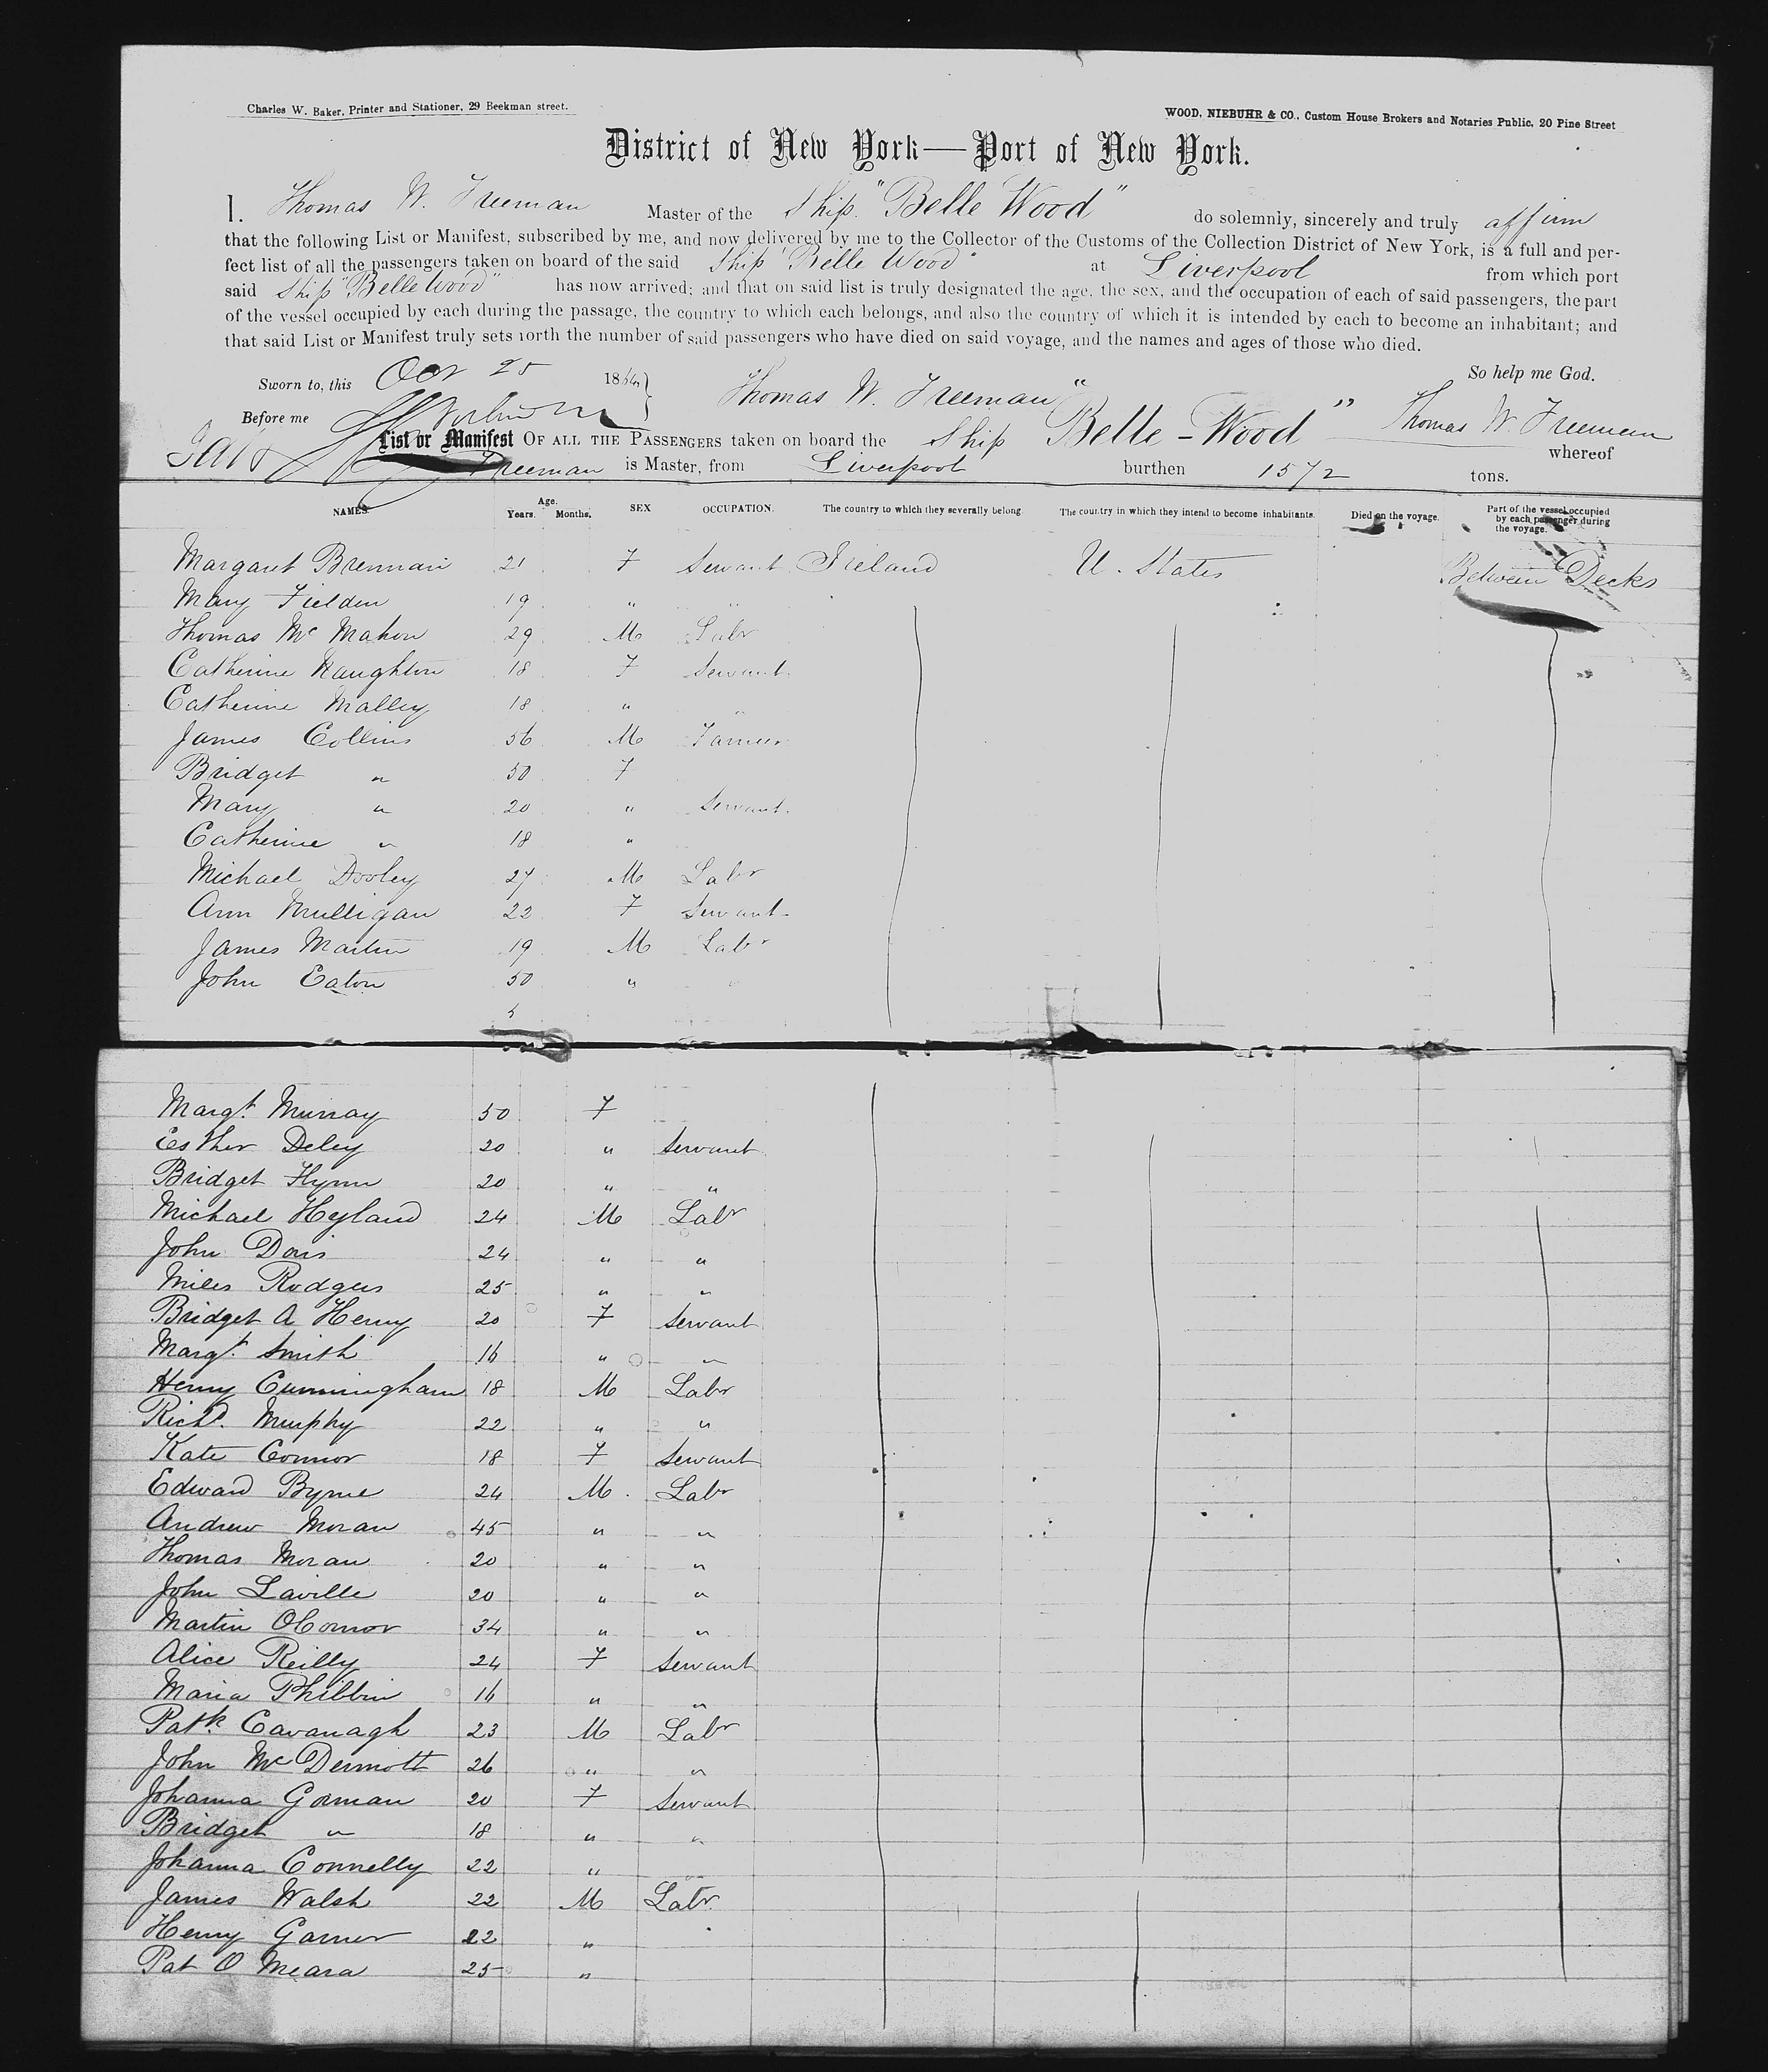 Charles W. Baker, Printer and Stationer, 29 Beekman street.
WOOD, NIEBUHR & CO., Custom House Brokers and Notaries Public, 20 Pine Street
District of New York—Port of New York.
I. Thomas W. Freeman Master of the Ship "Belle Wood" do solemnly, sincerely and truly affirm
that the following List or Manifest, subscribed by me, and now delivered by me to the Collector of the Customs of the Collection District of New York, is a full and per-
fect list of all the passengers taken on board of the said Ship "Belle Wood" at Liverpool from which port
said Ship "Belle Wood" has now arrived; and that on said list is truly designated the age, the sex, and the occupation of each of said passengers, the part
of the vessel occupied by each during the passage, the country to which each belongs, and also the country of which it is intended by each to become an inhabitant; and
that said List or Manifest truly sets forth the number of said passengers who have died on said voyage, and the names and ages of those who died.
So help me God.
Sworn to, this Oct 25 1864
Thomas W. Freeman
Before me
List or Manifest OF ALL THE PASSENGERS taken on board the Ship "Belle-Wood" Thomas W. Freeman whereof
Freeman is Master, from Liverpool burthen 1572 tons.
NAMES. Age. Years. Months. SEX OCCUPATION. The country to which they severally belong. The country in which they intend to become inhabitants. Died on the voyage. Part of the vessel occupied by each passenger during the voyage.
Margaret Brennan 21 F Servant Ireland U. States Between Decks
Mary Fielden 19 " "
Thomas Mc Mahon 29 M Labr
Catherine Naughton 18 F Servant
Catherine Malley 18 " "
James Collins 56 M Farmer
Bridget " 50 F
Mary " 20 " Servant
Catherine " 18 "
Michael Dooley 27 M Labr
Ann Mulligan 22 F Servant
James Martin 19 M Labr
John Eaton 50 " "
Margt. Murray 50 F
Esther Deley 20 " Servant
Bridget Flynn 20 " "
Michael Heyland 24 M Labr
John Davis 24 " "
Miles Rodgers 25 " "
Bridget A Henry 20 F Servant
Margt. Smith 16 " "
Henry Cunningham 18 M Labr
Richd. Murphy 22 " "
Kate Connor 18 F Servant
Edward Byrne 24 M. Labr
Andrew Moran 45 " "
Thomas Moran 20 " "
John Laville 20 " "
Martin OConnor 34 " "
Alice Reilly 24 F Servant
Maria Phibbin 16 " "
Patk. Cavanagh 23 M Labr
John Mc Dermott 26 " "
Johanna Gorman 20 F Servant
Bridget " 18 " "
Johanna Connelly 22 " "
James Walsh 22 M Labr.
Henry Garner 22 "
Pat O Meara 25 "